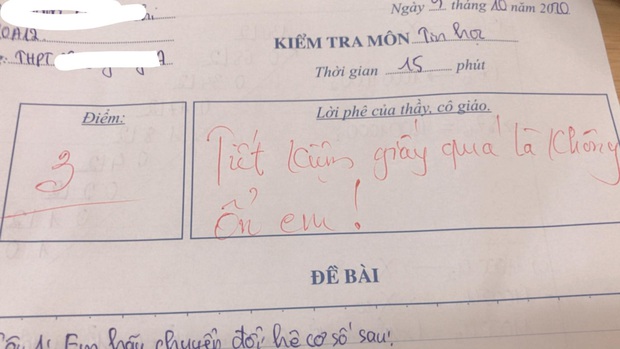 Ngày 9 tháng 10 năm 2020
0A12
KIỂM TRA MÔN Tin học
THPT
Thời gian 15 phút
Điểm:
3
Lời phê của thầy, cô giáo.
Tiết kiệm giấy quá là không
ổn em!
ĐỀ BÀI
Câu 1: Em hãy chuyển đổi hệ cơ số sau: